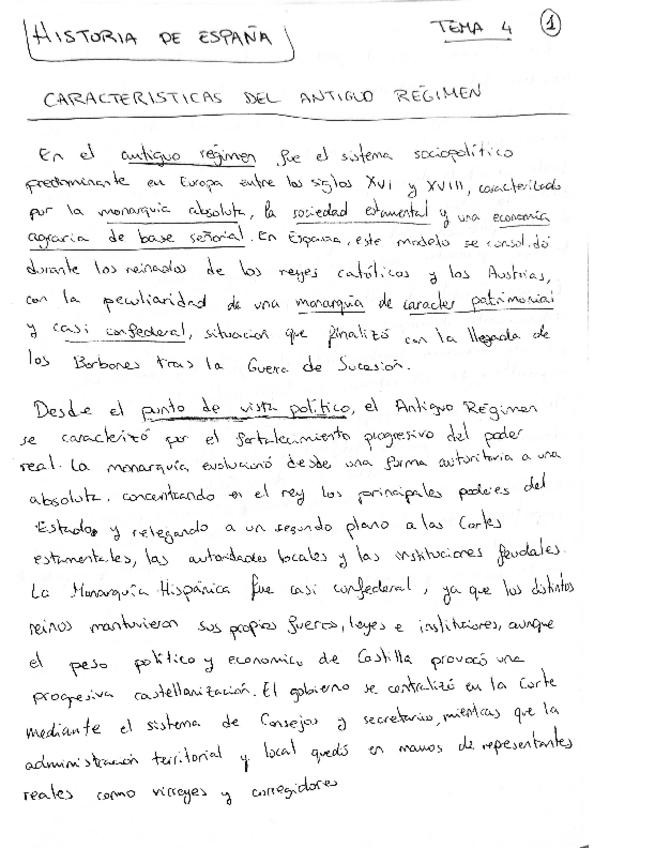 HISTORIA DE ESPAÑA
TEMA 4 1
CARACTERISTICAS DEL ANTIGUO RÉGIMEN
En el antiguo régimen fue el sistema sociopolítico
predominante en Europa entre los siglos XVI y XVIII, caracterizado
por la monarquía absoluta, la sociedad estamental y una economía
agraria de base señorial. En España, este modelo se consolidó
durante los reinados de los reyes católicos y los Austrias,
con la peculiaridad de una monarquía de caracter patrimonial
y casi confederal, situación que finalizó con la llegada de
los Borbones tras la Guerra de Sucesión.
Desde el punto de vista político, el Antiguo Régimen
se caracterizó por el fortalecimiento progresivo del poder
real. La monarquía evolucionó desde una forma autoritaria a una
absoluta. concentrando en el rey los principales poderes del
Estado y relegando a un segundo plano a las Cortes
estamentales, las autoridades locales y las instituciones feudales.
La Monarquía Hispánica fue casi confederal, ya que los distintos
reinos mantuvieron sus propios fueros, leyes e instituciones, aunque
el peso político y economico de Castilla provocó una
progresiva castellanización. El gobierno se centralizó en la Corte
mediante el sistema de Consejos y secretarios, mientras que la
administración territorial y local quedó en manos de representantes
reales como virreyes y corregidores